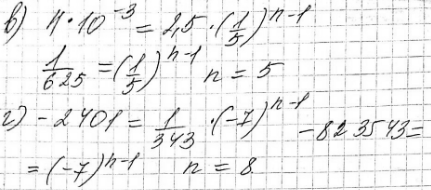 в) 4·10⁻³ = 2,5·(1/5)ⁿ⁻¹
1/625 = (1/5)ⁿ⁻¹ n = 5
г) -2401 = 1/343 ·(-7)ⁿ⁻¹ -823543=
= (-7)ⁿ⁻¹ n = 8